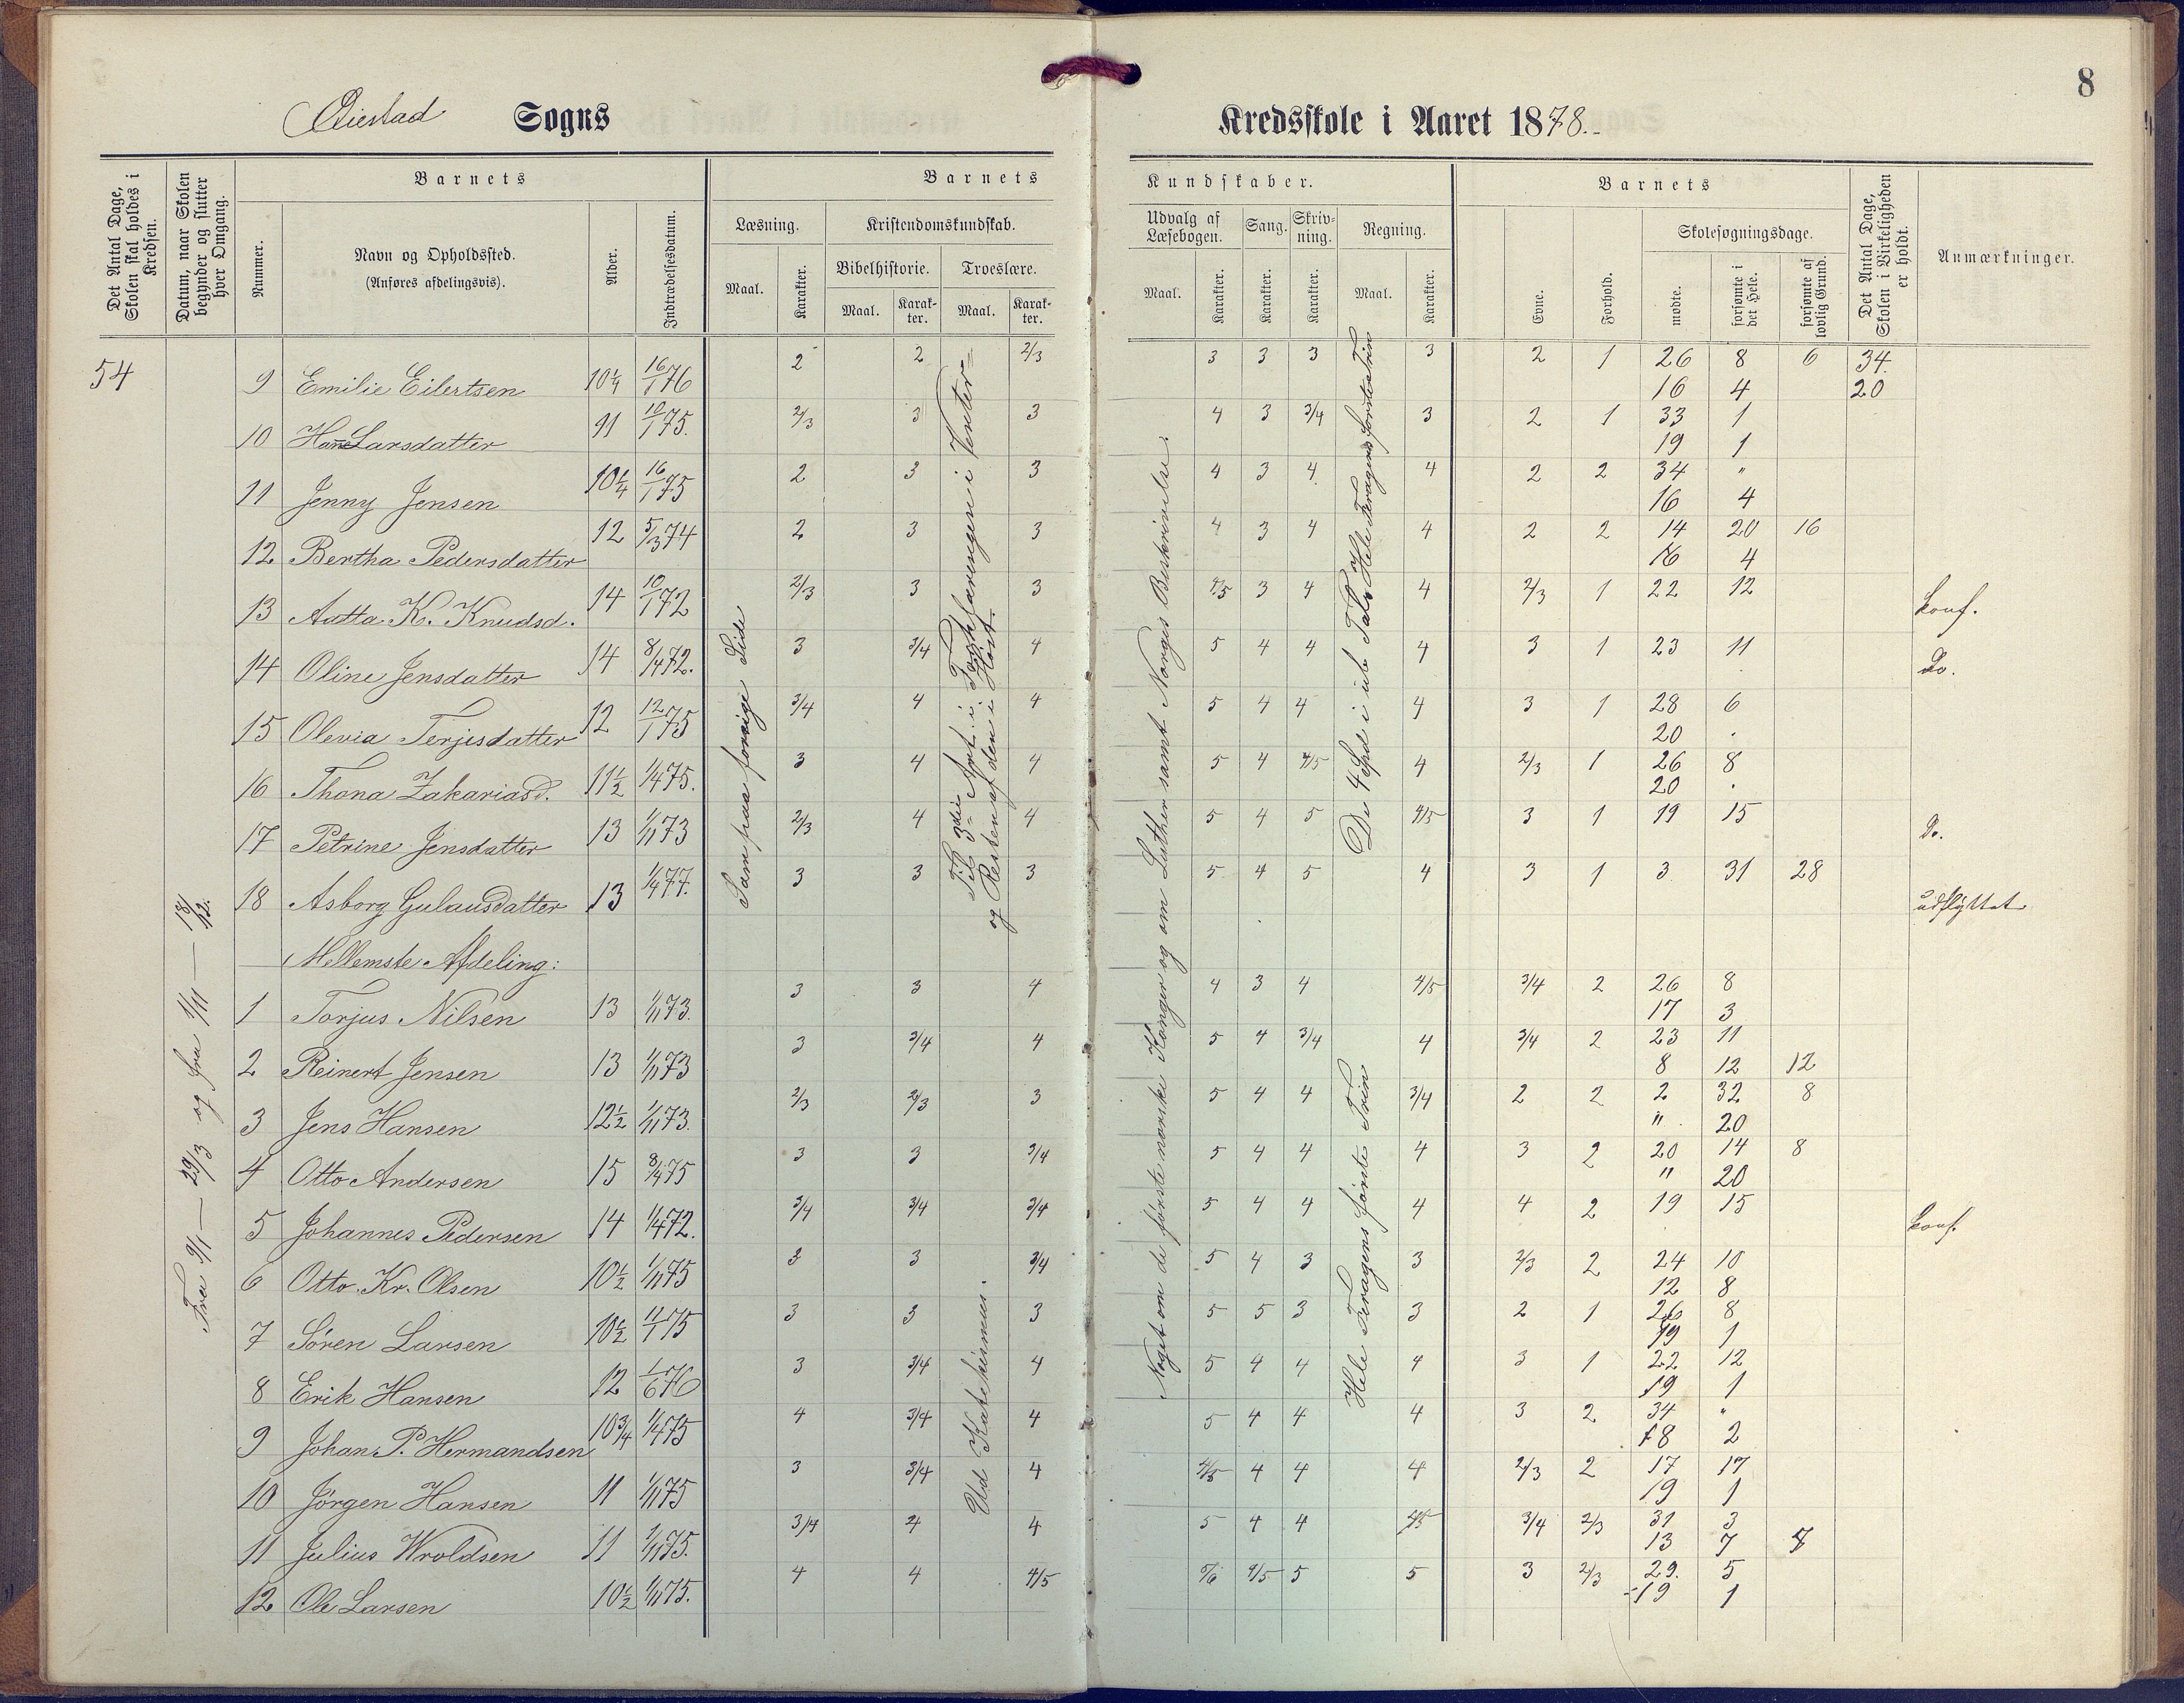 8
Øiestad Sogns Kredsskole i Aaret 1878.
Det Antal Dage, Skolen skal holdes i Kredsen.
Datum, naar Skolen begynder og slutter hver Omgang.
Barnets
Nummer.
Navn og Opholdssted.
(Anføres afdelingsvis).
Alder.
Indtrædelsesdatum.
Barnets Kundskaber.
Læsning.
Maal.
Karakter.
Kristendomskundskab.
Bibelhistorie.
Maal.
Karakter.
Troeslære.
Maal.
Karakter.
Udvalg af Læsebogen.
Maal.
Karakter.
Sang.
Karakter.
Skrivning.
Karakter.
Regning.
Maal.
Karakter.
Barnets
Evne.
Forhold.
Skolesøgningsdage.
mødte.
forsømte i det Hele.
forsømte af lovlig Grund.
Det Antal Dage, Skolen i Virkeligheden er holdt.
Anmærkninger.
54
Fra 9/1 — 29/3 og fra 1/11 — 18/12.
Som paa forrige Side
Til 3die Art. i Forklaringen i Vinter- og Resten af den i Høst.
Ud Katekismus.
Noget om de første norske Konger og om Luther samt Norges Beskrivelse.
De 4 Spd i ub Tal & Hele Feragens første Trin
Hele Feragens første Trin
9 Emilie Eilertsen 10 1/4 16/1 76 2 2 2/3 3 3 3 3 2 1 26 8 6 34.
16 4 20
10 Hanne Larsdatter 91 10/1 75. 2/3 3 3 4 3 3/4 3 2 1 33 1
19 1
11 Jenny Jensen 10 1/4 16/1 75 2 3 3 4 3 4 4 2 2 34 "
16 4
12 Bertha Pedersdatter 12 5/3 74 2 3 3 4 3 4 4 2 2 14 20 16
16 4
13 Aatta K. Knudsd. 14 10/1 72 2/3 3 3 4/5 3 4 4 2/3 1 22 12 konf.
14 Oline Jensdatter 14 8/4 72. 3 3/4 4 5 4 4 4 3 1 23 11 Do.
15 Olevia Terjesdatter 12 12/1 75 3/4 4 4 5 4 4 4 3 1 28 6
20 .
16 Thona Zakariasd. 11 1/2 1/4 75. 3 4 4 5 4 4/5 4 2/3 1 26 8
20 .
17 Petrine Jensdatter 13 1/11 73 2/3 4 4 5 4 5 4/5 3 1 19 15 Do.
18 Asborg Gulausdatter 13 1/4 77. 3 3 3 5 4 5 4 3 1 3 31 28 udflyttet
Mellemste Afdeling:
1 Torjus Nilsen 13 1/11 73. 3 3 4 4 3 4 4/5 3/4 2 26 8
17 3
2 Reinert Jensen 13 1/11 73 3 3/4 4 5 4 3/4 4 3/4 2 23 11
8 12 12
3 Jens Hansen 12 1/2 1/11 73. 2/3 2/3 3 5 4 4 3/4 2 2 2 32 8
" 20
4 Otto Andersen 15 8/4 75 3 3 3/4 5 4 4 4 3 2 20 14 8
" 20
5 Johannes Pedersen 14 1/4 72. 3/4 3/4 3/4 5 4 4 4 4 2 19 15 konf.
6 Otto Kr. Olsen 10 1/2 1/11 75 3 3 3/4 5 4 3 3 2/3 2 24 10
12 8
7 Søren Larsen 10 1/2 11/1 75 3 3 3 5 5 3 3 2 1 26 8
19 1
8 Erik Hansen 12 1/6 76 3 3/4 4 5 4 4 4 3 1 22 12
19 1
9 Johan P. Hermandsen 10 3/4 1/4 75 4 3/4 4 5 4 4 4 3 2 34 "
18 2
10 Jørgen Hansen 11 1/11 75 3 3/4 4 4/5 4 4 4 2/3 2 17 17
19 1
11 Julius Wroldsen 11 1/11 75. 3/4 4 4 5 4 4 4/5 3/4 2/3 31 3
13 7 7
12 Ole Larsen 10 1/2 1/11 75. 4 4 4/5 5/6 4/5 5 5 3 2/3 29. 5
19 1